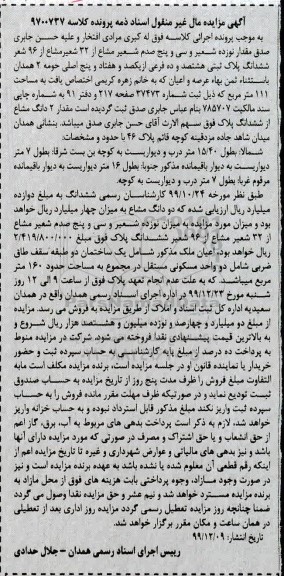 آگهی مزایده مال غیر منقول اسناد ذمه پرونده کلاسه ۹۷۰۰۷۳۷
به موجب پرونده اجرائی کلاسه فوق له کبری مرادی افتخار و علیه حسن جابری
صدق مقدار نوزده شعیر و سی و پنج صدم شعیر مشاع از ۳۲ شعیر مشاع از ۹۶ شعر
ششدانگ پلاک ثبتی هشتصد و ده فرعی از یکصد و هفتاد و پنج اصلی حومه ۲ همدان
باستثناء ثمن بهاء عرصه و اعیان که به خانم زهره کریمی اختصاص یافت به مساحت
۱۱۱ متر مربع که ذیل ثبت شماره ۳۷۴۷۳ صفحه ۲۱۷ و دفتر ۹۱ به شماره چاپی
سند مالکیت ۷۸۵۷۰۷ بنام عباس جابری صدق ثبت گردیده است مقدار ۲ دانگ مشاع
از ششدانگ پلاک فوق سهم الارث آقای حسن جابری صدق میباشد. بنشانی همدان
میدان شاهد جاده مزدقینه کوچه قائم پلاک ۴۶ با حدود و مشخصات:
شمالا: بطول ۱۵/۴۰ متر درب و دیواریست به کوچه بن بست شرقا: بطول ۷ متر
دیواریست به دیوار باقیمانده مذکور جنوبا: بطول ۱۶ متر دیواریست به دیوار باقیمانده
مرقوم غربا: بطول ۷ متر درب و دیواریست به کوچه.
طبق نظر مورخه ۹۹/۱۰/۲۴ کارشناسان رسمی ششدانگ به مبلغ دوازده
میلیارد ریال ارزیابی شده که دو دانگ مشاع به میزان چهار میلیارد ریال خواهد
بود و میزان مورد مزایده به میزان نوزده شعیر و سی و پنج صدم شعیر مشاع
از ۳۲ شعیر مشاع از ۹۶ شعیر ششدانگ پلاک فوق مبلغ ۲/۴۱۹/۸۰۰/۰۰۰
ریال خواهد بود. اعیان ملک مذکور شامل یک ساختمان دو طبقه سقف طاق
ضربی شامل دو واحد مسکونی مستقل در مجموع به مساحت حدود ۱۶۰ متر
مربع میباشد. که به علت عدم انجام تعهد پلاک فوق از ساعت ۹ الی ۱۲ روز
شنبه مورخ ۹۹/۱۲/۲۳ در اداره اجرای اسناد رسمی همدان واقع در همدان
سعیدیه اداره کل ثبت اسناد و املاک از طریق مزایده به فروش می رسد. مزایده
از مبلغ دو میلیارد و چهارصد و نوزده میلیون و هشتصد هزار ریال شروع و
به بالاترین قیمت پیشنهادی نقدا فروخته می شود. شرکت در مزایده منوط
به پرداخت ده درصد از مبلغ پایه کارشناسی به حساب سپرده ثبت و حضور
خریدار یا نماینده قانون او در جلسه مزایده است. برنده مزایده مکلف است مابه
التفاوت مبلغ فروش را ظرف مدت پنج روز از تاریخ مزایده به حساب صندوق
ثبت تودیع نماید و در صورتیکه ظرف مهلت مقرر مانده فروش را به حساب
سپرده ثبت واریز نکند مبلغ مذکور قابل استرداد نبوده و به حساب خزانه واریز
خواهد شد. لازم به ذکر است پرداخت بدهی های مربوط به آب، برق، گاز اعم
از حق انشعاب و یا حق اشتراک و مصرف در صورتی که مورد مزایده دارای آنها
باشد و نیز بدهی های مالیاتی و عوارض شهرداری و غیره تا تاریخ مزایده اعم از
اینکه رقم قطعی آن معلوم شده یا نشده باشد به عهده برنده مزایده است و نیز
در صورت وجود مازاد، وجوه پرداختی بابت هزینه های فوق از محل مازاد به
برنده مزایده مسترد خواهد شد و نیم عشر و حق مزایده نقدا وصول می گردد
ضمنا چنانچه روز مزایده تعطیل رسمی گردد مزایده روز اداری بعد از تعطیلی
در همان ساعت و مکان مقرر برگزار خواهد شد.
تاریخ انتشار: ۹۹/۱۲/۰۹
رییس اجرای اسناد رسمی همدان - جلال حدادی